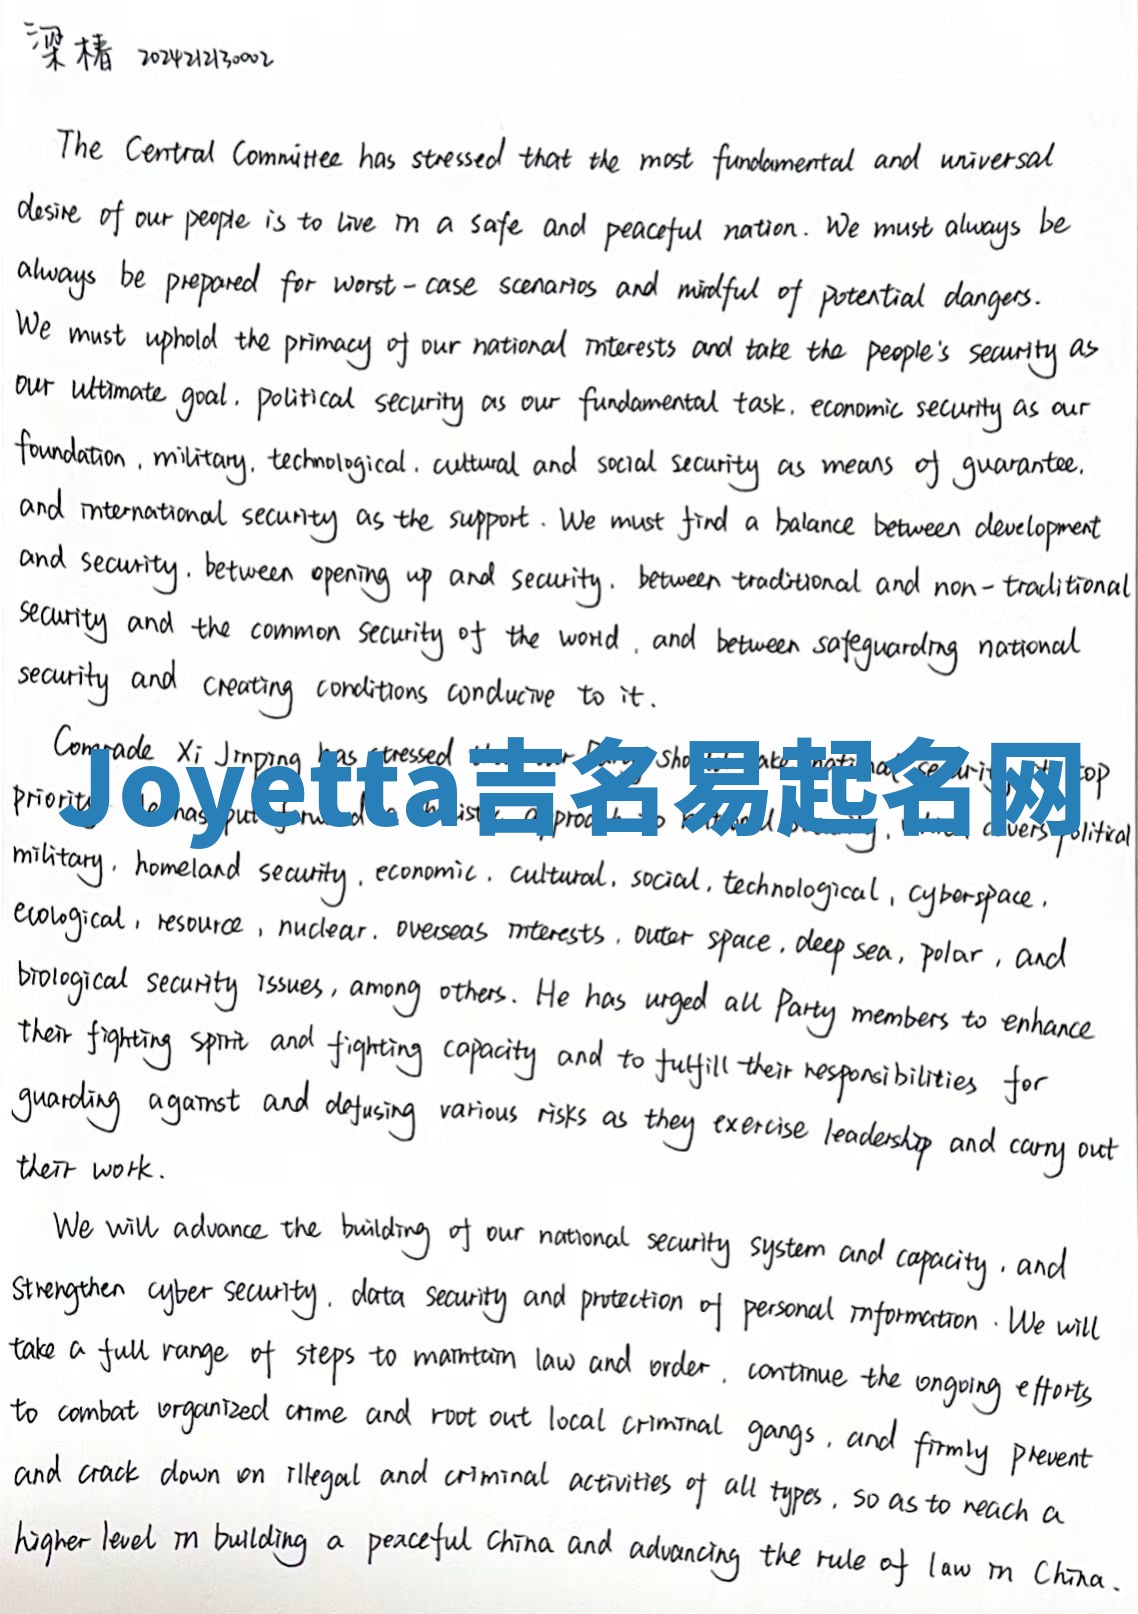 梁椿 2024212130002
The Central Committee has stressed that the most fundamental and universal
desire of our people is to live in a safe and peaceful nation. We must always be
always be prepared for worst-case scenarios and mindful of potential dangers.
We must uphold the primacy of our national interests and take the people's security as
our ultimate goal, political security as our fundamental task, economic security as our
foundation, military, technological, cultural and social security as means of guarantee,
and international security as the support. We must find a balance between development
and security, between opening up and security, between traditional and non-traditional
security and the common security of the world, and between safeguarding national
security and creating conditions conducive to it.
Comrade Xi Jinping has stressed
top
Joyetta吉名易起名网
priority has put covers political
military, homeland security, economic, cultural, social, technological, cyberspace,
ecological, resource, nuclear, overseas interests, outer space, deep sea, polar, and
biological security issues, among others. He has urged all Party members to enhance
their fighting spirit and fighting capacity and to fulfill their responsibilities for
guarding against and defusing various risks as they exercise leadership and carry out
their work.
We will advance the building of our national security system and capacity, and
strengthen cyber security, data security and protection of personal information. We will
take a full range of steps to maintain law and order, continue the ongoing efforts
to combat organized crime and root out local criminal gangs, and firmly prevent
and crack down on illegal and criminal activities of all types, so as to reach a
higher level in building a peaceful China and advancing the rule of law in China.